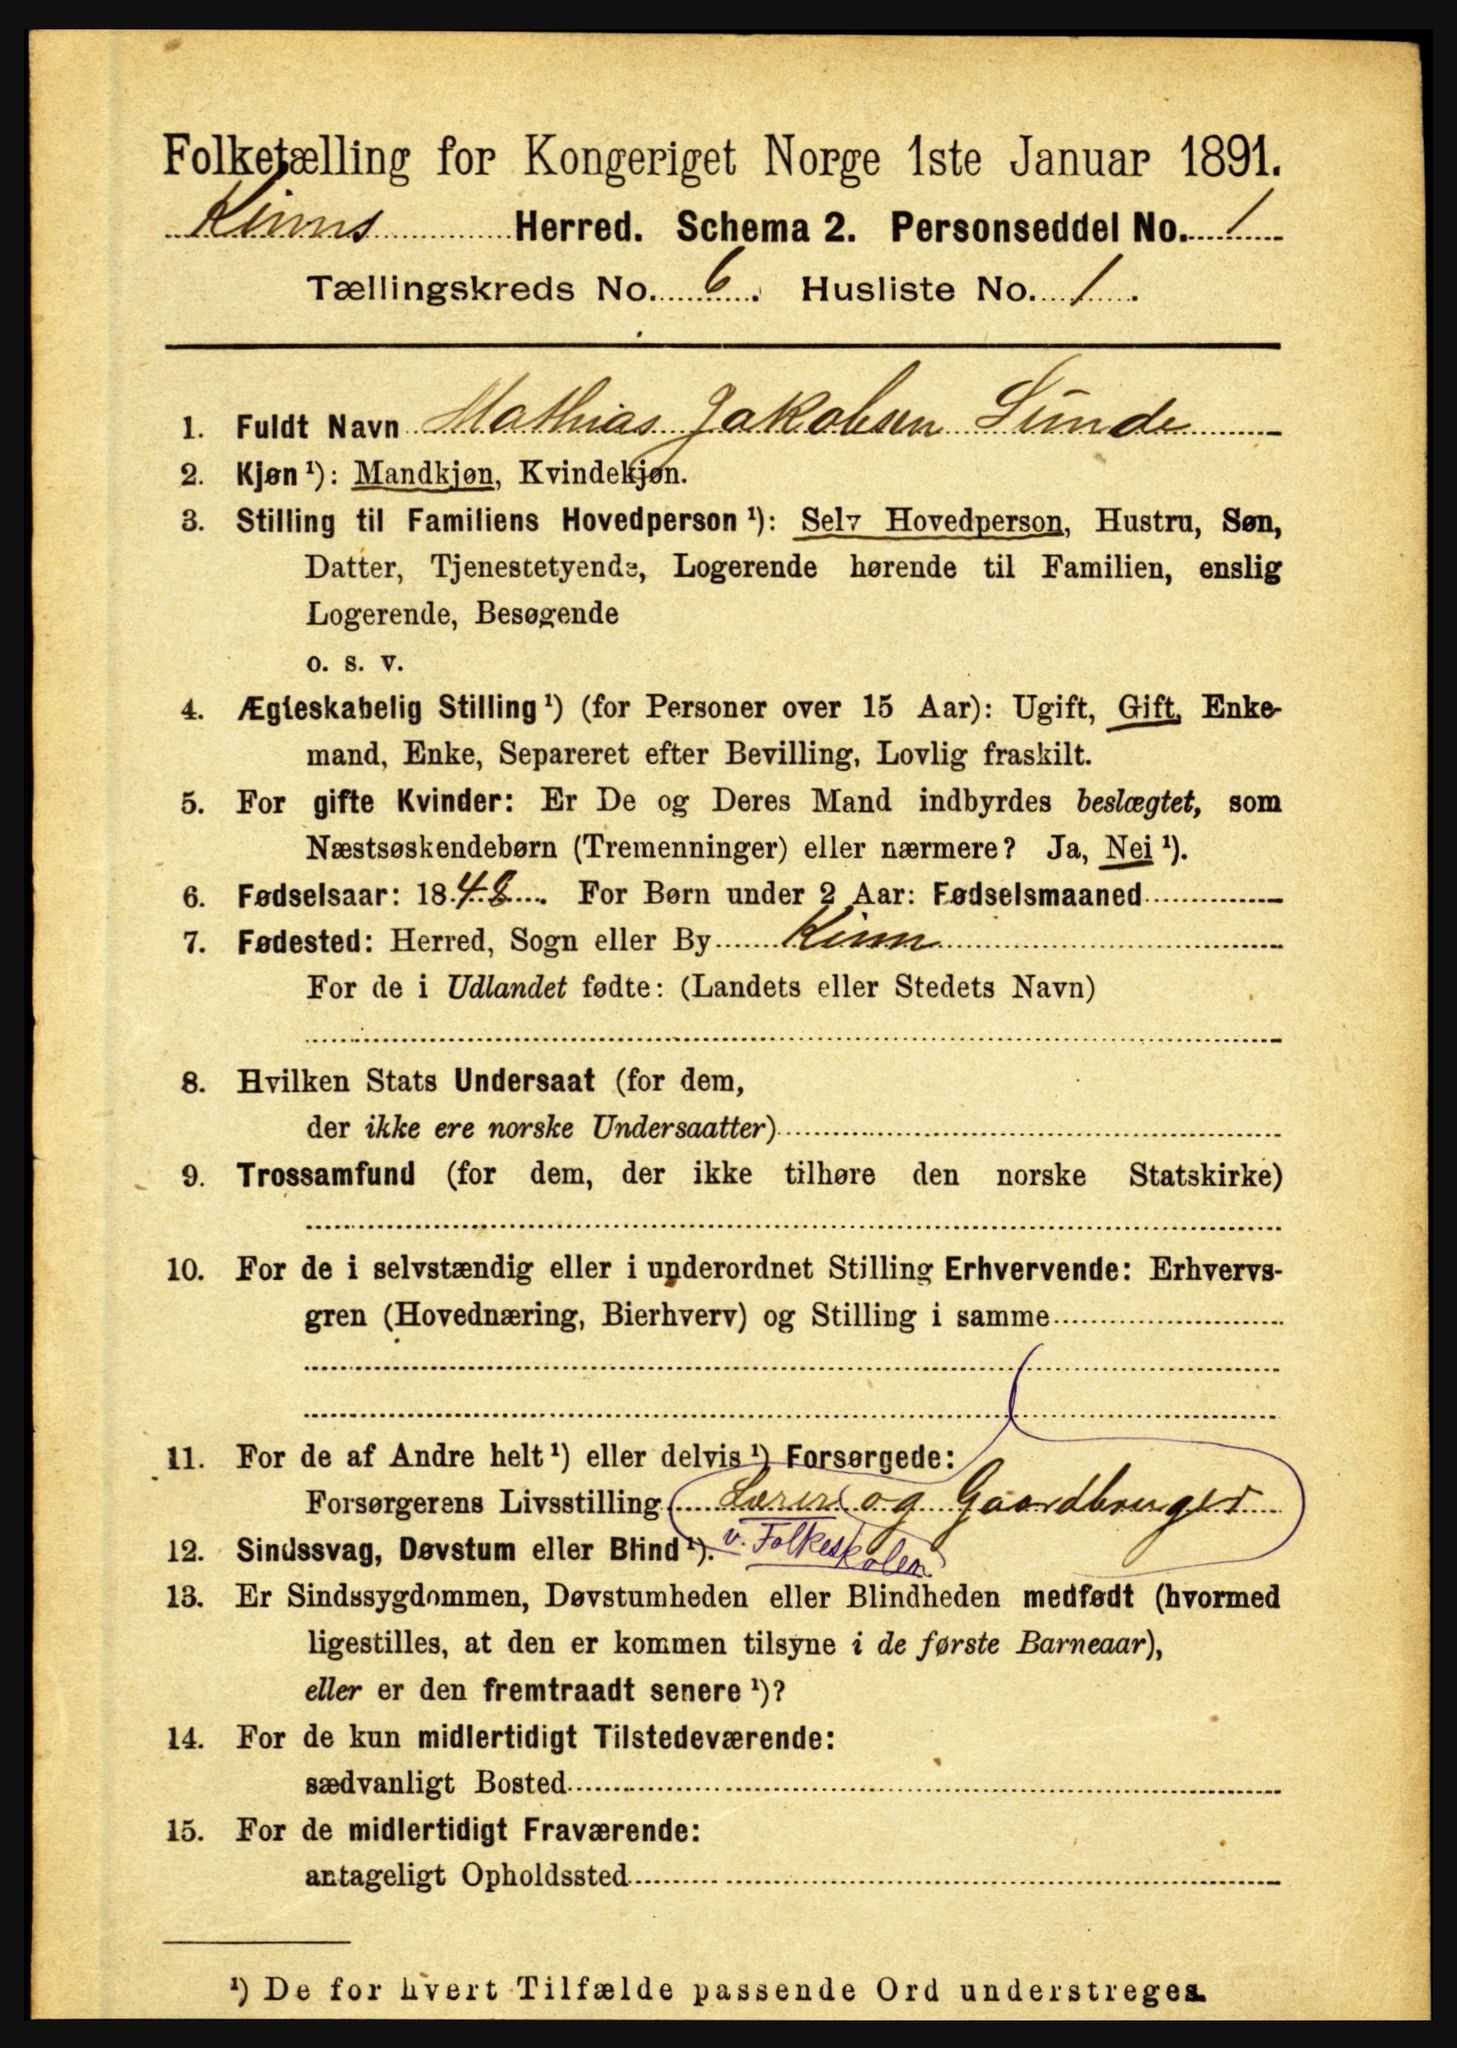 Folketælling for Kongeriget Norge 1ste Januar 1891.
Kinns Herred. Schema 2. Personseddel No. 1
Tællingskreds No. 6. Husliste No. 1.
1. Fuldt Navn Mathias Jakobsen Sunde
2. Kjøn ¹): Mandkjøn, Kvindekjøn.
3. Stilling til Familiens Hovedperson ¹): Selv Hovedperson, Hustru, Søn,
Datter, Tjenestetyende, Logerende hørende til Familien, enslig
Logerende, Besøgende
o. s. v.
4. Ægteskabelig Stilling ¹) (for Personer over 15 Aar): Ugift, Gift, Enke-
mand, Enke, Separeret efter Bevilling, Lovlig fraskilt.
5. For gifte Kvinder: Er De og Deres Mand indbyrdes beslægtet, som
Næstsøskendebørn (Tremenninger) eller nærmere? Ja, Nei ¹).
6. Fødselsaar: 1848. For Børn under 2 Aar: Fødselsmaaned
7. Fødested: Herred, Sogn eller By Kinn
For de i Udlandet fødte: (Landets eller Stedets Navn)
8. Hvilken Stats Undersaat (for dem,
der ikke ere norske Undersaatter)
9. Trossamfund (for dem, der ikke tilhøre den norske Statskirke)
10. For de i selvstændig eller i underordnet Stilling Erhvervende: Erhvervs-
gren (Hovednæring, Bierhverv) og Stilling i samme
11. For de af Andre helt ¹) eller delvis ¹) Forsørgede:
Forsørgerens Livsstilling Lærer og Gaardbruger
v. Folkeskolen
12. Sindssvag, Døvstum eller Blind ¹).
13. Er Sindssygdommen, Døvstumheden eller Blindheden medfødt (hvormed
ligestilles, at den er kommen tilsyne i de første Barneaar),
eller er den fremtraadt senere ¹)?
14. For de kun midlertidigt Tilstedeværende:
sædvanligt Bosted
15. For de midlertidigt Fraværende:
antageligt Opholdssted
¹) De for hvert Tilfælde passende Ord understreges.